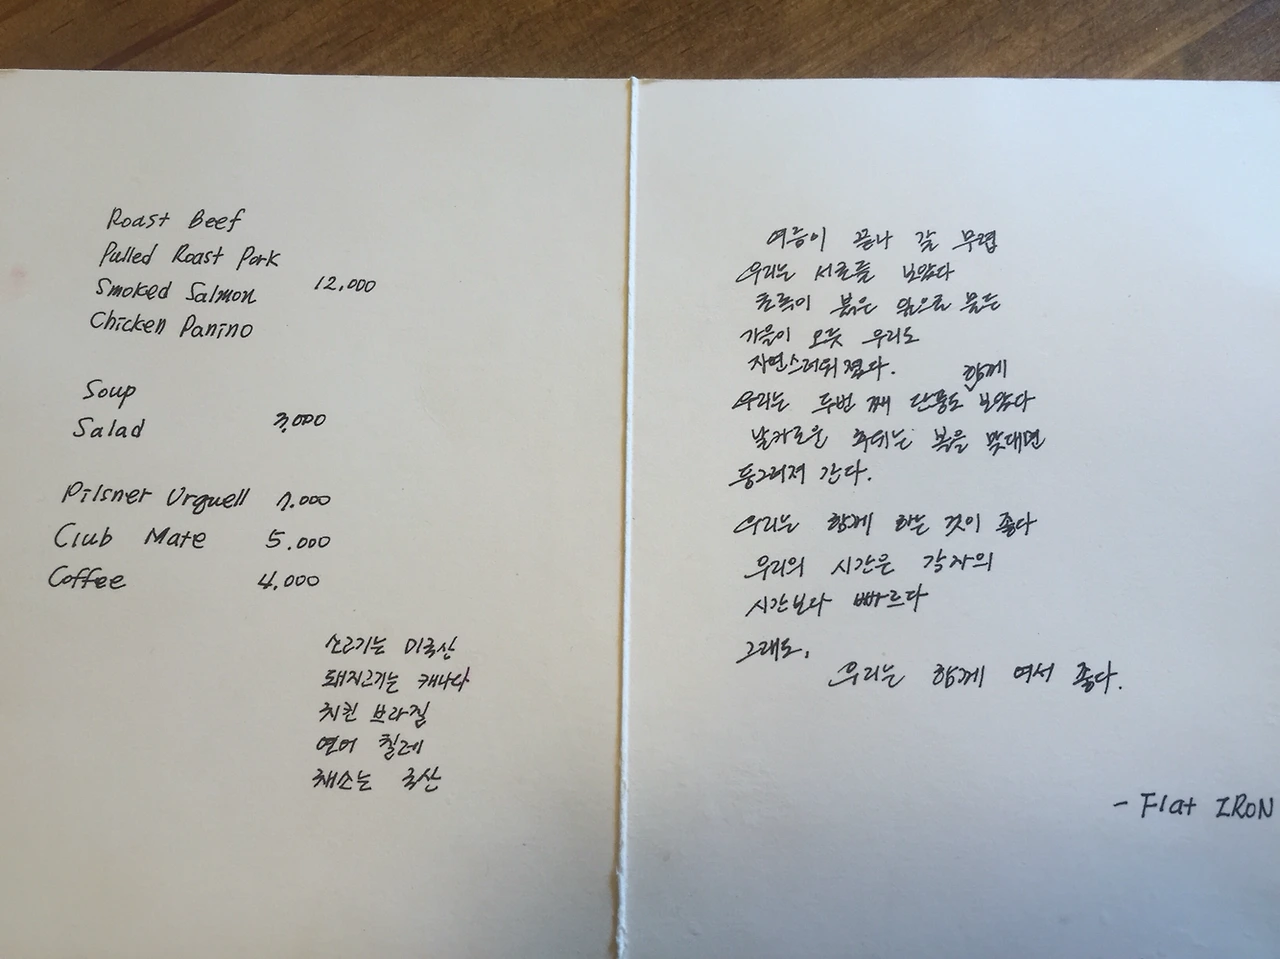 Roast Beef
Pulled Roast Pork
Smoked Salmon 12,000
Chicken Panino
Soup
Salad 3,000
Pilsner Urquell 7.000
Club Mate 5.000
Coffee 4,000
소고기는 미국산
돼지고기는 캐나다
치킨 브라질
연어 칠레
채소는 국산
여름이 끝나 갈 무렵
우리는 서로를 보았다
초록이 붉은 으로 물든
가을이 오듯 우리도
자연스러워졌다.
우리는 두번 째 단풍도 함께 보았다
날카로운 추위는 볼을 맞대면
둥그러져 간다.
우리는 함께 하는 것이 좋다
우리의 시간은 각자의
시간보다 빠르다
그래도,
우리는 함께 여서 좋다.
- Flat IRON